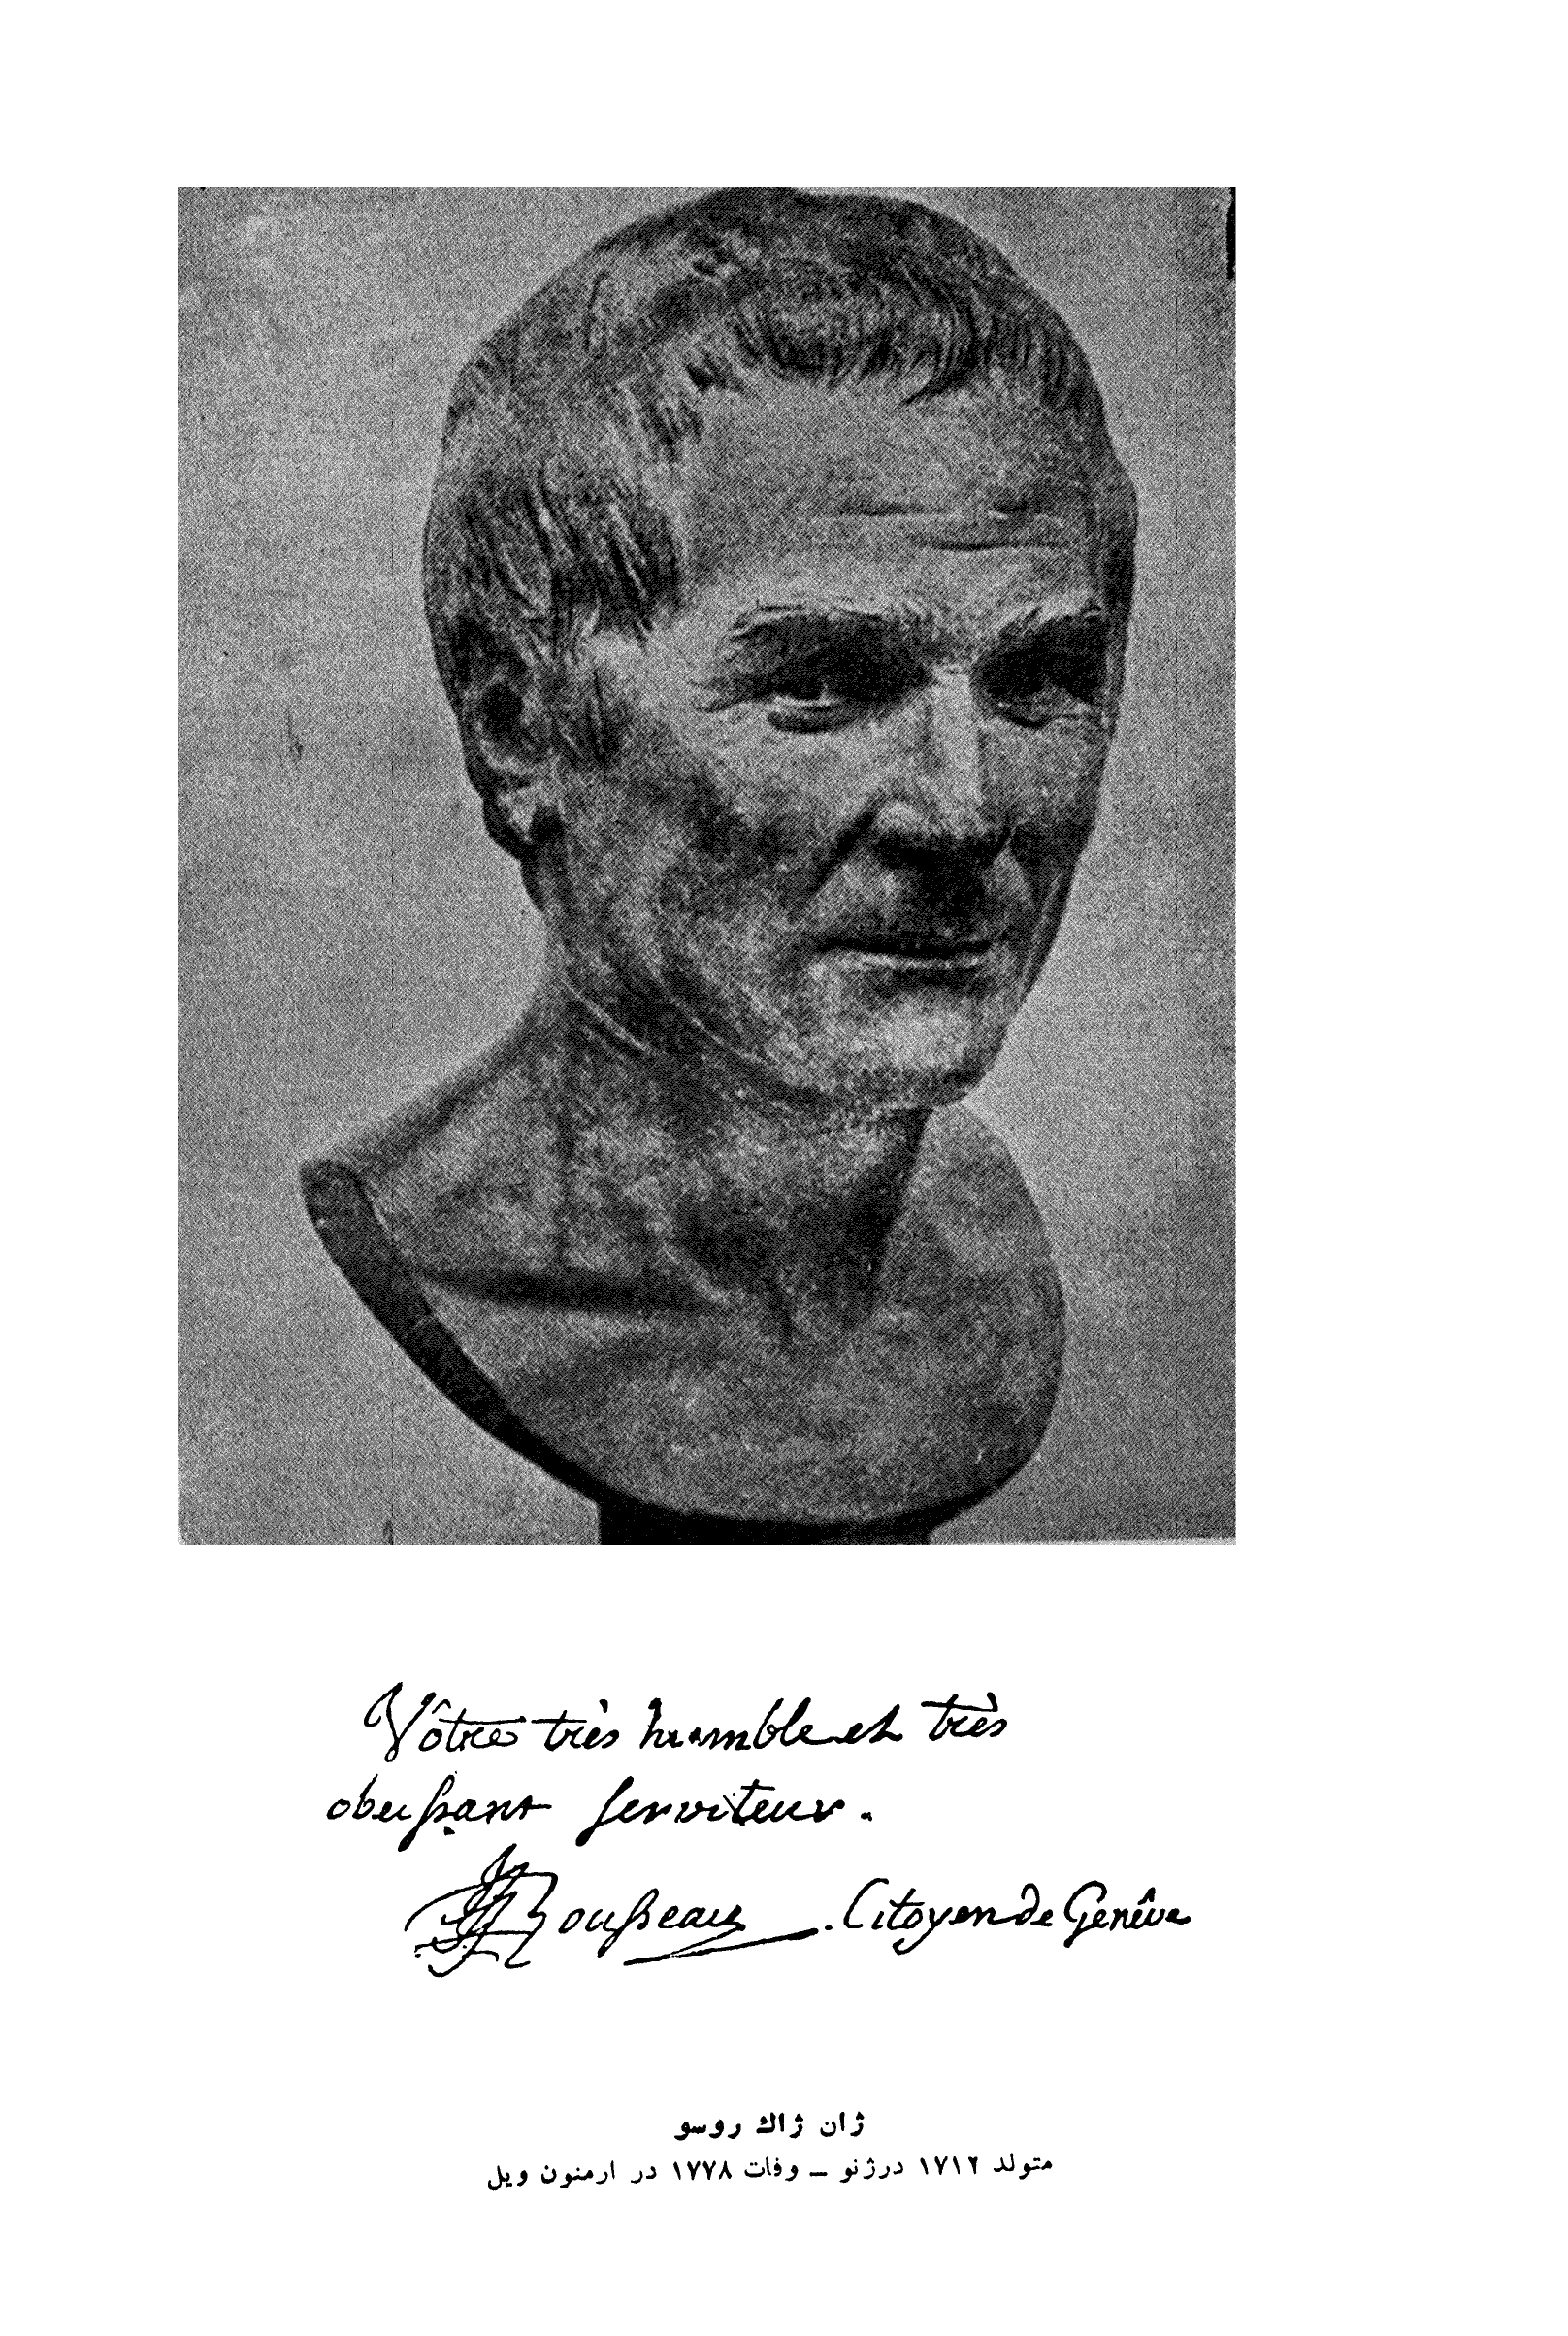 Vôtre très humble et très
obeissant serviteur.
JJRousseau. Citoyen de Genêve
ژان ژاك روسو
متولد ۱۷۱۲ درژنو – وفات ۱۷۷۸ در ارمنون ویل